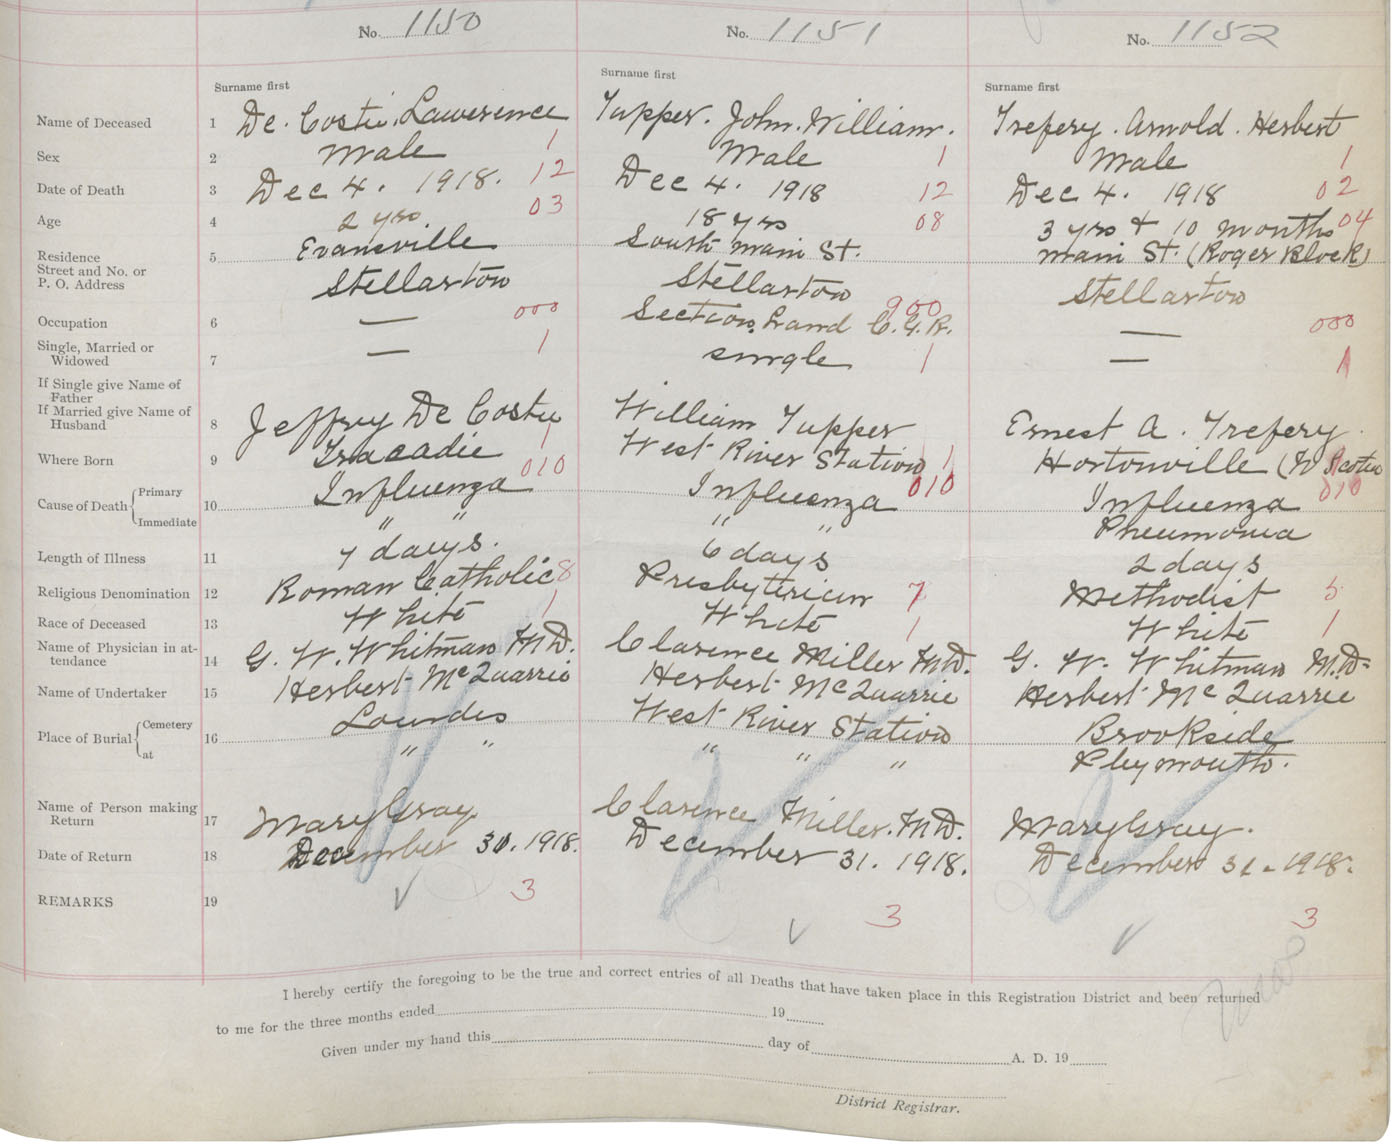 No. 1150
No. 1151
No. 1152
Surname first
Surname first
Surname first
Name of Deceased 1 De. Coste. Lawerence Tupper. John. William. Trefery. Arnold. Herbert
Sex 2 Male 1 Male 1 Male 1
Date of Death 3 Dec 4. 1918. 12 Dec 4. 1918 12 Dec 4. 1918 02
Age 4 2 yrs 03 18 yrs 08 3 yrs + 10 months 04
Residence 5 Evansville South main St. main St. (Roger Block)
Street and No. or
P. O. Address Stellarton Stellarton Stellarton
Occupation 6 — 000 Section hand C.G.R. 900 — 000
Single, Married or
Widowed 7 — 1 single 1 — 1
If Single give Name of
Father
If Married give Name of
Husband 8 Jeffrey De Coste William Tupper Ernest A. Trefery
Where Born 9 Tracadie 1 West River Station 1 Hortonville (N Scotia 1
Cause of Death Primary 10 Influenza 010 Influenza 010 Influenza 010
Immediate " " " " Pneumonia
Length of Illness 11 7 days. 6 days 2 days
Religious Denomination 12 Roman Catholic 8 Presbyterian 7 Methodist 5
Race of Deceased 13 White 1 White 1 White 1
Name of Physician in at-
tendance 14 G. W. Whitman M.D. Clarence Miller M.D. G. W. Whitman M.D.
Name of Undertaker 15 Herbert McQuarrie Herbert McQuarrie Herbert McQuarrie
Place of Burial Cemetery 16 Lourdes West River Station Brookside
at " " " " " Plymouth.
Name of Person making
Return 17 Mary Gray Clarence Miller. M.D. Mary Gray.
Date of Return 18 December 31. 1918. December 31. 1918. December 31. 1918.
REMARKS 19 3 3 3
I hereby certify the foregoing to be the true and correct entries of all Deaths that have taken place in this Registration District and been returned
to me for the three months ended 19
Given under my hand this day of A. D. 19
District Registrar.